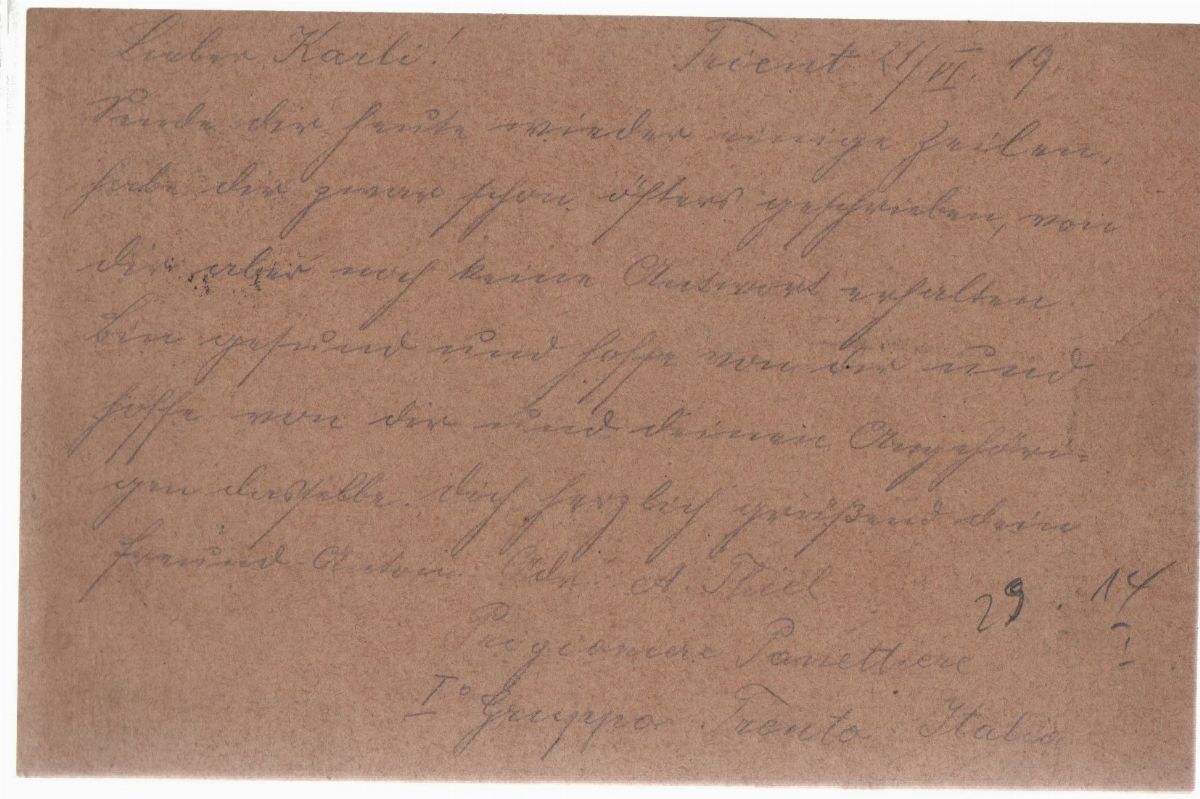 Lieber Karli! Trient 21/VI. 19.
Sende dir heute wieder einige Zeilen,
habe dir zwar schon öfters geschrieben, von
dir aber noch keine Antwort erhalten.
Bin gesund und hoffe von dir und
hoffe von dir und deinen Angehöri=
gen dasselbe. Dich herzlich grüßend dein
Freund Anton. Adr. A. Thiel
29. 14
Prigioniere Panettiere
I
I° Gruppo Trento Italia